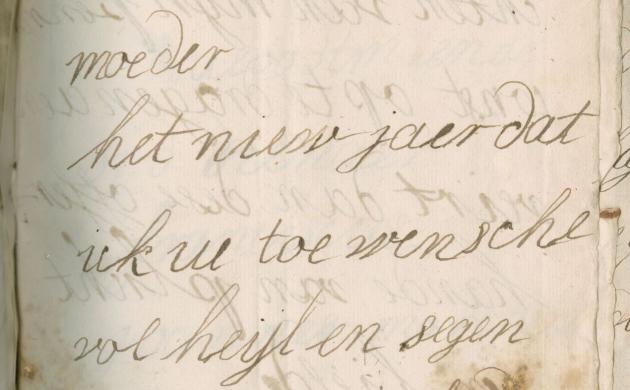 moeder
het nieuw jaer dat
ick ue toe wensche
vol heyl en segen